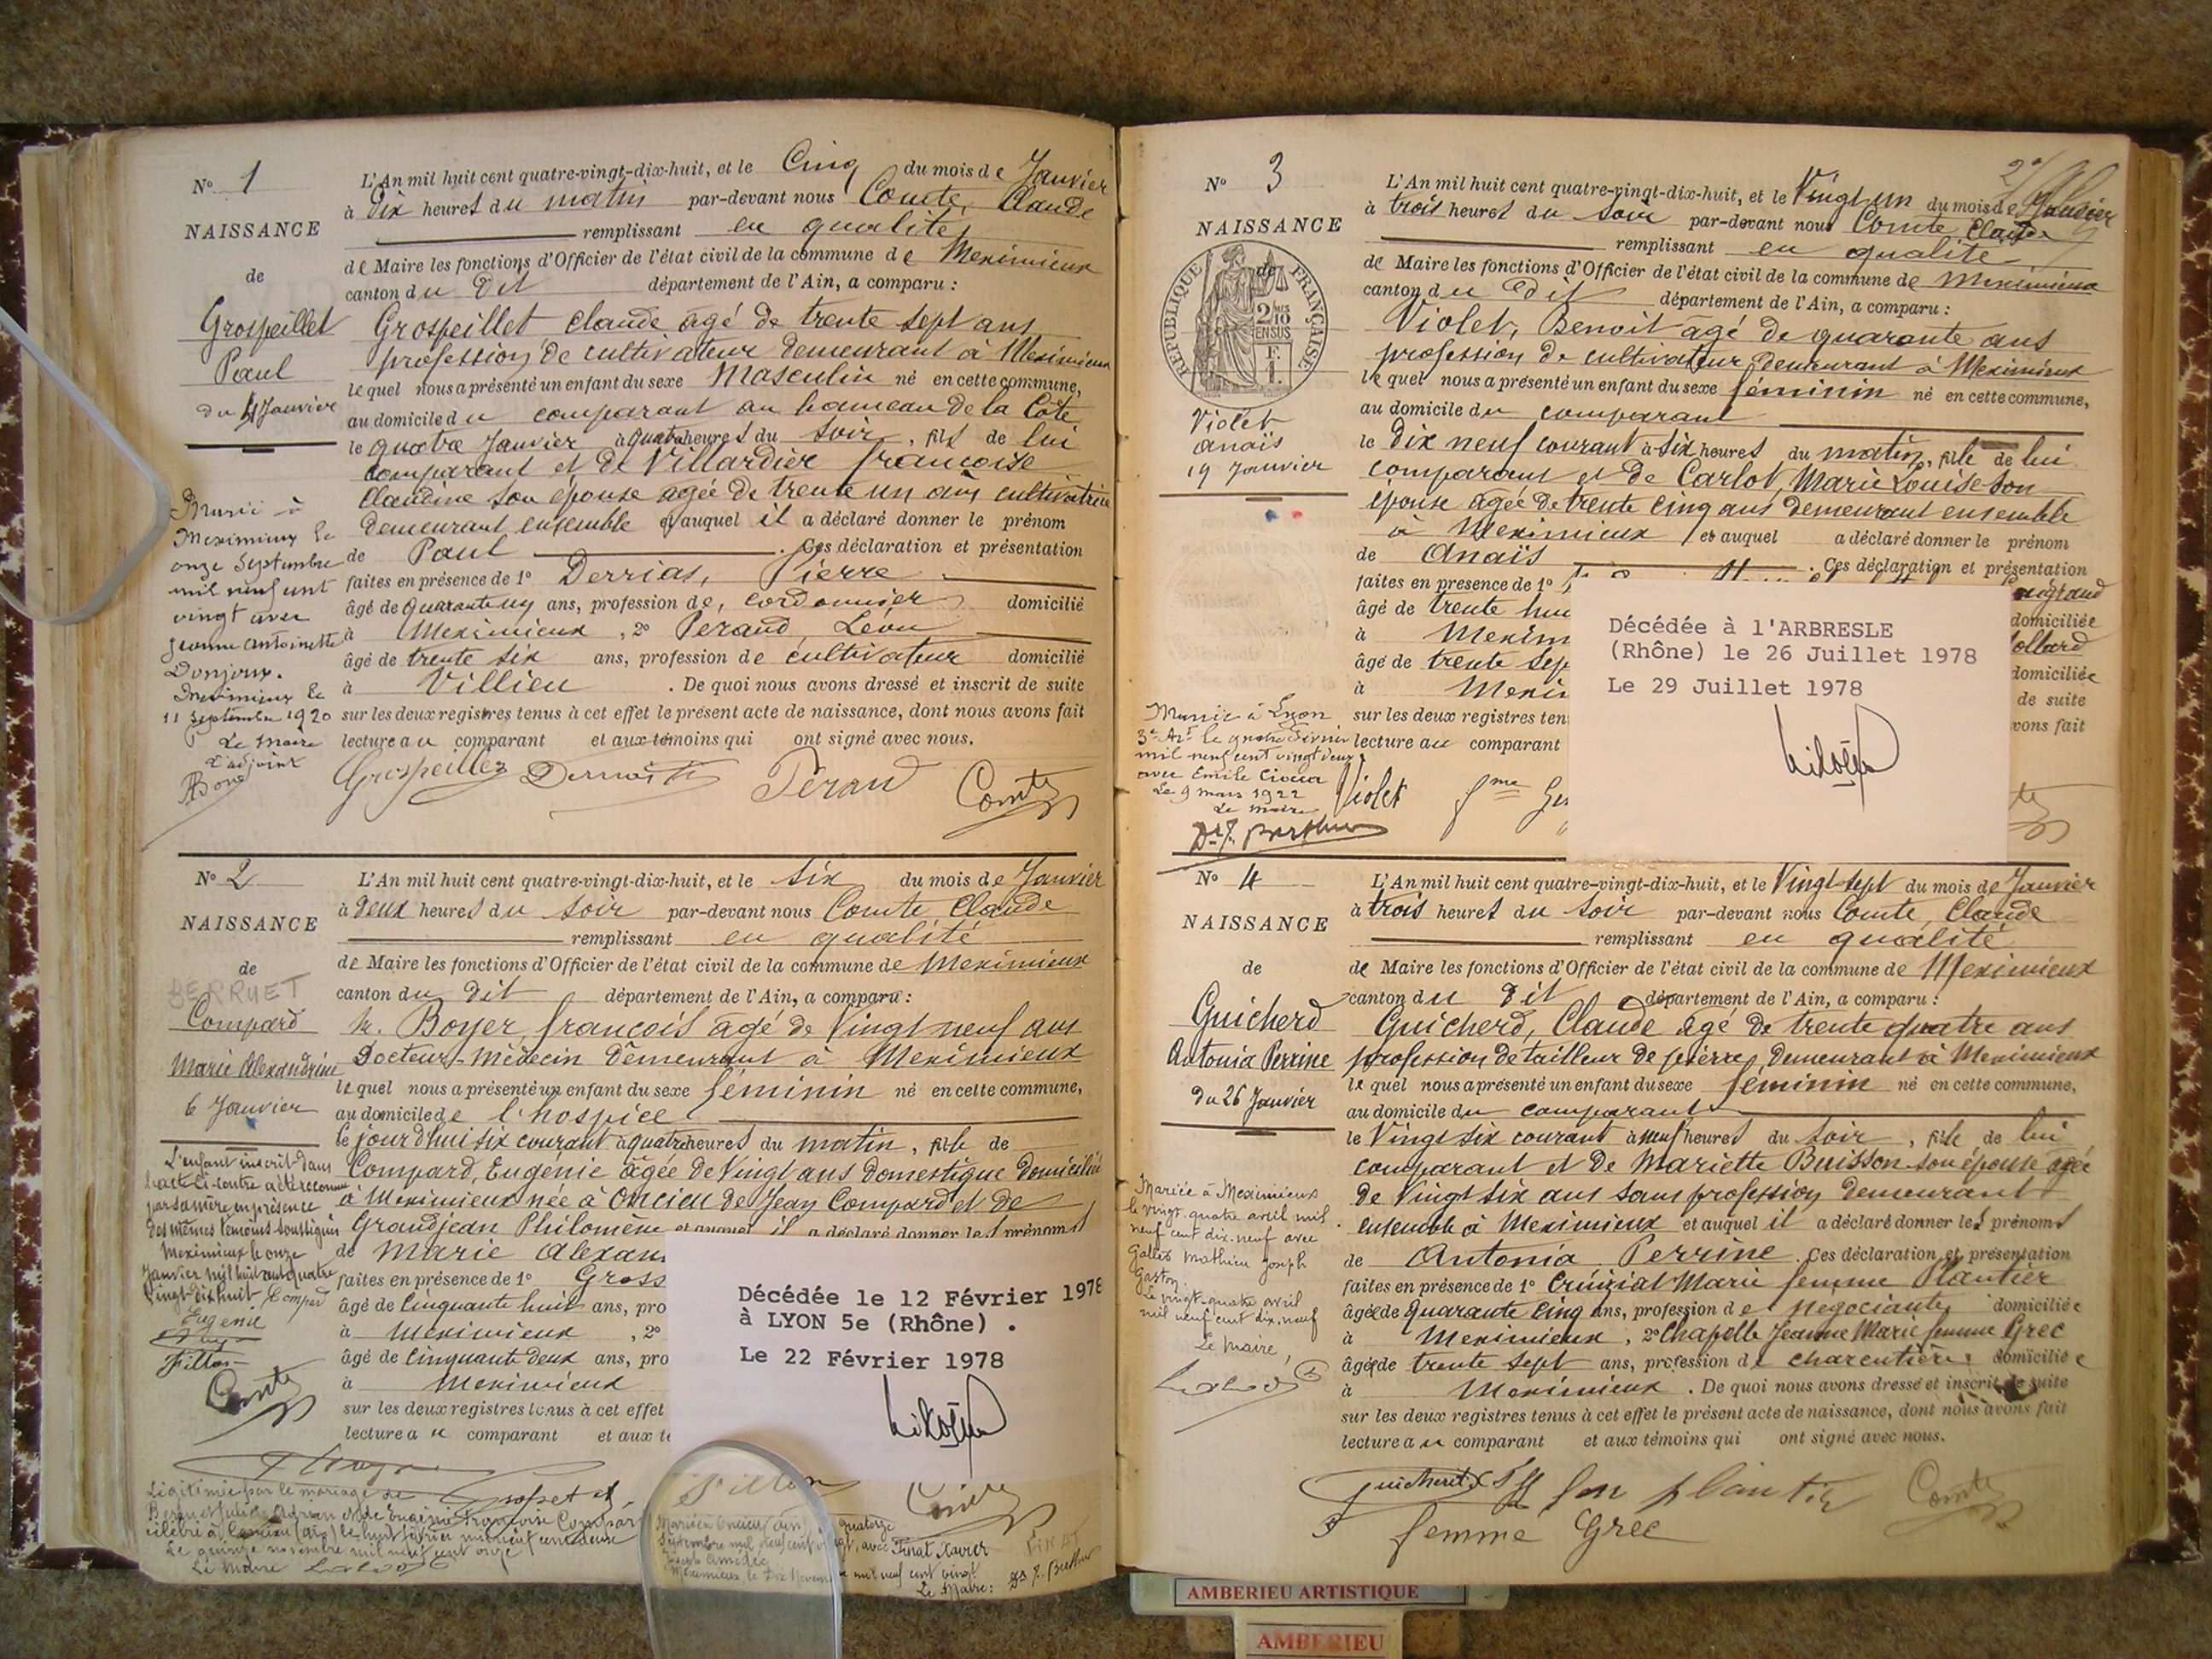 N° 1
NAISSANCE
de
Grospeillet
Paul
du 4 Janvier
L'An mil huit cent quatre-vingt-dix-huit, et le Cinq du mois de Janvier
à Dix heures du matin par-devant nous Comte, Claude
remplissant en qualité
de Maire les fonctions d'Officier de l'état civil de la commune de Meximieux
canton du Dit département de l'Ain, a comparu :
Grospeillet Claude âgé de trente sept ans
profession de cultivateur demeurant à Meximieux
lequel nous a présenté un enfant du sexe Masculin né en cette commune,
au domicile du comparant au hameau de la Côte
le quatre Janvier à quatre heures du soir, fils de lui
comparant et de Villardier françoise
Claudine son épouse agée de trente un ans cultivatrice
demeurant ensemble et auquel il a déclaré donner le prénom
de Paul . Ces déclaration et présentation
faites en présence de 1° Derrias, Pierre
âgé de quarante un ans, profession de, cordonnier domicilié
à Meximieux, 2° Perand, Léon
âgé de trente six ans, profession de cultivateur domicilié
à Villieu . De quoi nous avons dressé et inscrit de suite
sur les deux registres tenus à cet effet le présent acte de naissance, dont nous avons fait
lecture au comparant et aux témoins qui ont signé avec nous.
Grospeillet Perand Comte
Marié à
Meximieux le
onze Septembre
mil neuf cent
vingt avec
Jeanne Antoinette
Donjoux.
Meximieux le
11 Septembre 1920
Le Maire
L'adjoint
N° 2
NAISSANCE
de
BERRUET
Compard
Marie Alexandrine
6 Janvier
L'An mil huit cent quatre-vingt-dix-huit, et le six du mois de Janvier
à deux heures du soir par-devant nous Comte, Claude
remplissant en qualité
de Maire les fonctions d'Officier de l'état civil de la commune de Meximieux
canton du Dit département de l'Ain, a comparu :
Mr. Boyer françois âgé de Vingt neuf ans
Docteur-Médecin demeurant à Meximieux
lequel nous a présenté un enfant du sexe féminin né en cette commune,
au domicile de l'hospice
le jourd'hui six courant à quatre heures du matin, fille de
Compard, Eugénie âgée de Vingt ans domestique domiciliée
à Meximieux née à Oncieu de Jean Compard et de
Grandjean Philomène et auquel il a déclaré donner les prénoms
de Marie Alexan
faites en présence de 1° Gross
âgé de Cinquante huit ans, pro
à Meximieux, 2°
âgé de Cinquante deux ans, pro
à Meximieux
sur les deux registres tenus à cet effet
lecture au comparant et aux té
Décédée le 12 Février 1978
à LYON 5e (Rhône) .
Le 22 Février 1978
L'enfant inscrit dans
l'acte ci-contre a été reconnue
par sa mère en présence
des mêmes témoins soussignés
Meximieux le onze
Janvier mil huit cent quatre
vingt dix huit. Compard
Eugénie
Fillon
Comte
Légitimée par le mariage de
Berruet Julien Adrian et de Eugénie Françoise Compard
célébré à (Ain) le huit février mil neuf cent
Le quinze novembre mil neuf cent onze
Le Maire
Fillon Comte
Mariée à Oncieu (Ain) quatorze
Septembre mil neuf cent vingt, avec Finat Xavier
Joseph Amédée
Meximieux, le Dix Novembre mil neuf cent vingt
Le Maire: Dr J. Berthier
FINAT
N° 3
NAISSANCE
de
RÉPUBLIQUE FRANÇAISE
2 10 EN SUS
Violet
Anaïs
19 Janvier
L'An mil huit cent quatre-vingt-dix-huit, et le Vingt un du mois de Janvier
à trois heures du soir par-devant nous Comte Claude
remplissant en qualité
de Maire les fonctions d'Officier de l'état civil de la commune de Meximieux
canton du Dit département de l'Ain, a comparu :
Violet, Benoit âgé de quarante ans
profession de cultivateur demeurant à Meximieux
lequel nous a présenté un enfant du sexe féminin né en cette commune,
au domicile du comparant
le Dix neuf courant à six heures du matin, fille de lui
comparant et de Carlot, Marie Louise son
épouse agée de trente cinq ans demeurant ensemble
à Meximieux et auquel a déclaré donner le prénom
de Anaïs . Ces déclaration et présentation
faites en présence de 1°
âgé de trente hui domiciliée
à Mexim ollard
âgé de trente sep domiciliée
à Mexim de suite
sur les deux registres ten vons fait
lecture au comparant
Violet fme
Décédée à l'ARBRESLE
(Rhône) le 26 Juillet 1978
Le 29 Juillet 1978
Mariée à Lyon
3e Art le quatre Février
mil neuf cent vingt deux
avec Emile Ciocca
Le 9 mars 1922
Le Maire
Dr J. Berthier
N° 4
NAISSANCE
de
Guicherd
Antonia Perrine
Du 26 Janvier
L'An mil huit cent quatre-vingt-dix-huit, et le Vingt-sept du mois de Janvier
à trois heures du soir par-devant nous Comte, Claude
remplissant en qualité
de Maire les fonctions d'Officier de l'état civil de la commune de Meximieux
canton du Dit département de l'Ain, a comparu :
Guicherd, Claude âgé de trente quatre ans
profession de tailleur de pierres, demeurant à Meximieux
lequel nous a présenté un enfant du sexe féminin né en cette commune,
au domicile du comparant
le Vingt six courant à neuf heures du soir, fille de lui
comparant et de Mariette Buisson son épouse agée
de Vingt six ans sans profession demeurant
ensemble à Meximieux et auquel il a déclaré donner les prénoms
de Antonia Perrine. Ces déclaration et présentation
faites en présence de 1° Marie femme Plantier
âgée de quarante cinq ans, profession de négociante domiciliée
à Meximieux, 2° Chapelle Jeanne Marie femme Grec
âgée de trente sept ans, profession de charcutière domiciliée
à Meximieux . De quoi nous avons dressé et inscrit de suite
sur les deux registres tenus à cet effet le présent acte de naissance, dont nous avons fait
lecture au comparant et aux témoins qui ont signé avec nous.
Guicherd fem plantier Comte
femme Grec
Mariée à Meximieux
le vingt-quatre avril mil
neuf cent dix-neuf avec
Gallet Mathieu Joseph
Gaston.
Le vingt-quatre avril
mil neuf cent dix-neuf
Le Maire,
AMBERIEU ARTISTIQUE
AMBERIEU